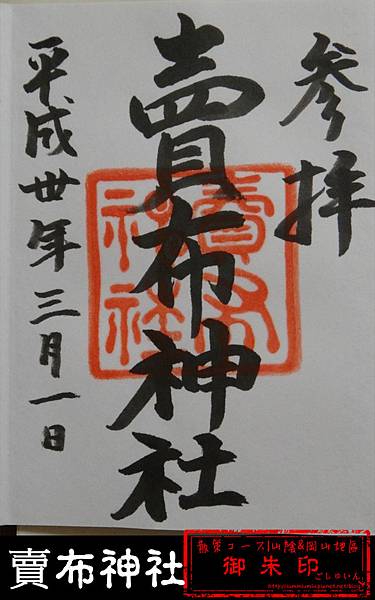 参拝
賣布神社
平成丗年三月一日
賣布
神社
賣布神社
散策コース|山陰&岡山地區
御朱印
ごしゅいん